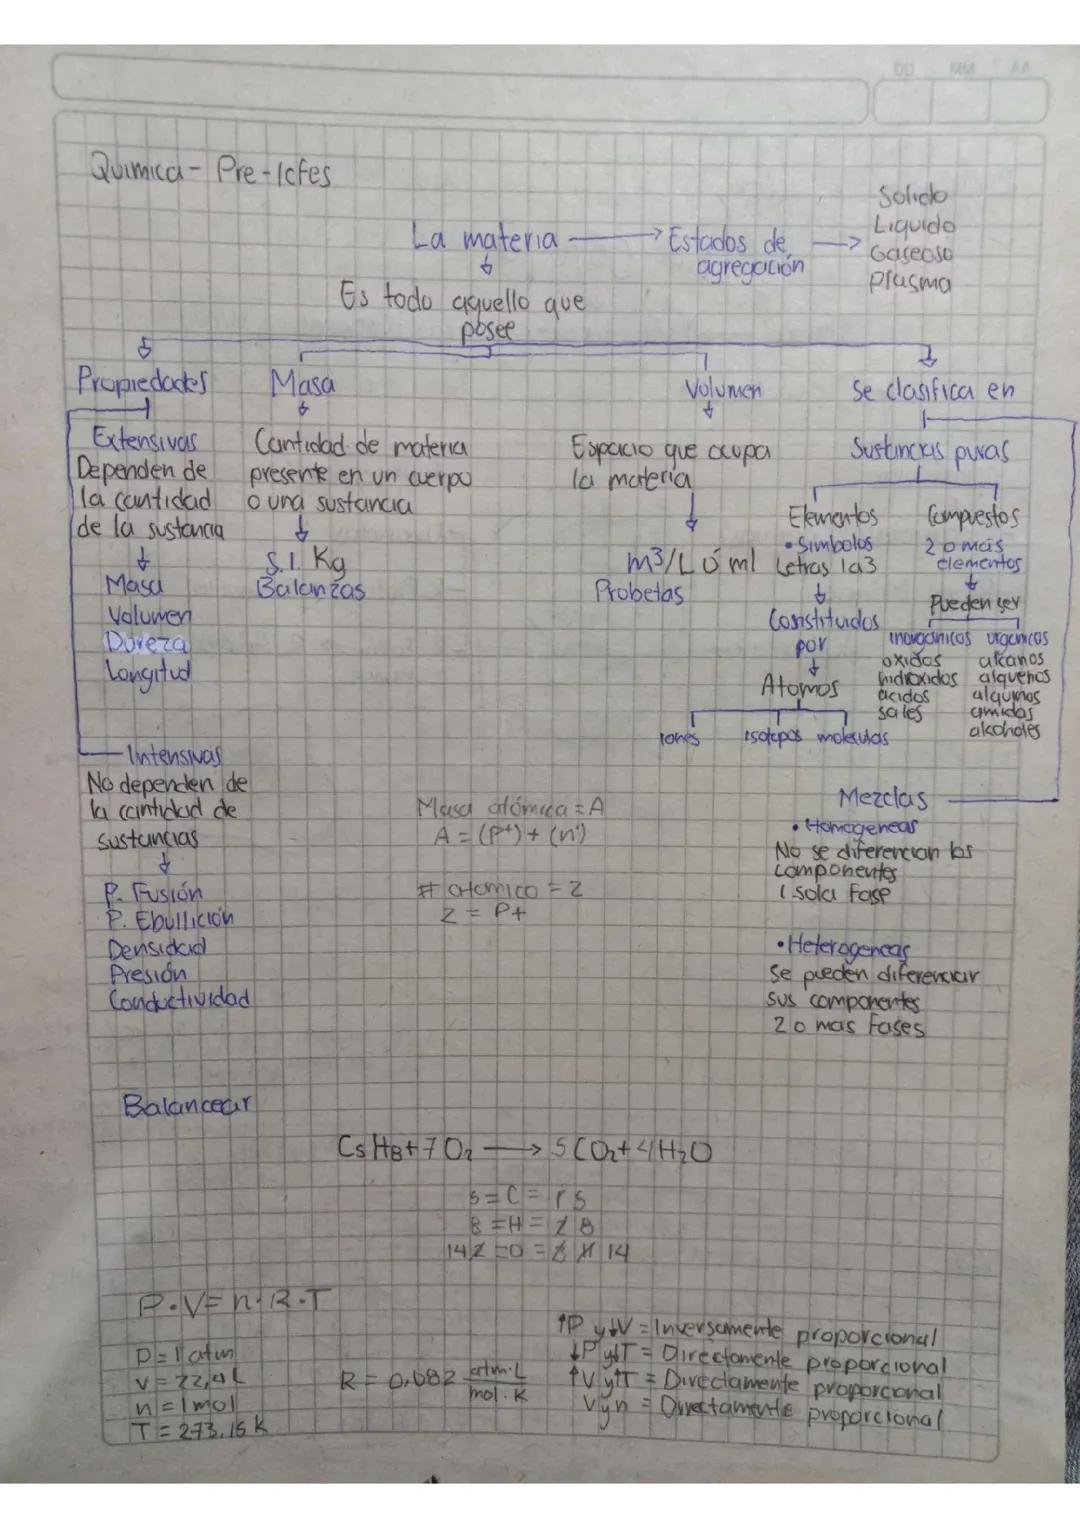 DD MM AA
Quimica - Pre-Icfes
La materia → Estados de agregación →
Solido
Liquido
Gaseoso
Plasma
Es todo aquello que
posee
Propiedades
Extensivas
Dependen de
la cantidad
de la sustancia
Masa
Volumen
Dureza
Longitud
Intensivas
No dependen de
la cantidad de
sustancias
P. Fusión
P. Ebullición
Densidad
Presión
Conductividad
Masa
Cantidad de materia
presente en un cuerpo
o una sustancia
S.I. Kg
Balanzas
Volumen
Espacio que ocupa
la materia
m³/L ó ml
Probetas
Se clasifica en
Sustancias puras
Elementos
• Simbolos
Letras 1a3
Constituidos
por
Atomos
iones isotopos moleculas
Compuestos
2 o más
elementos
Pueden ser
inorganicos
oxidos
hidroxidos
acidos
sales
organicos
alcanos
alquenos
alquinos
amidas
alcoholes
Mezclas
• Homogeneas
No se diferencian los
componentes
1 sola Fase
• Heterogeneas
Se pueden diferenciar
sus componentes
2 o mas Fases
Masa atómica = A
A = (P+) + (n)
# atomico = Z
Z = P+
Balancear
C5H8 + 7O2 → 5CO2 + 4H2O
5 = C = 1 5
8 = H = 2 8
14 2 = O = 14
P·V = n·R·T
P = 1 atm
V = 22,4 L
n = 1 mol
T = 273,15 K
R = 0,082 atm·L
mol·K
↑P y ↓V = Inversamente proporcional
↓P y ↓T = Directamente proporcional
↑V y ↑T = Directamente proporcional
V y n = Directamente proporcional